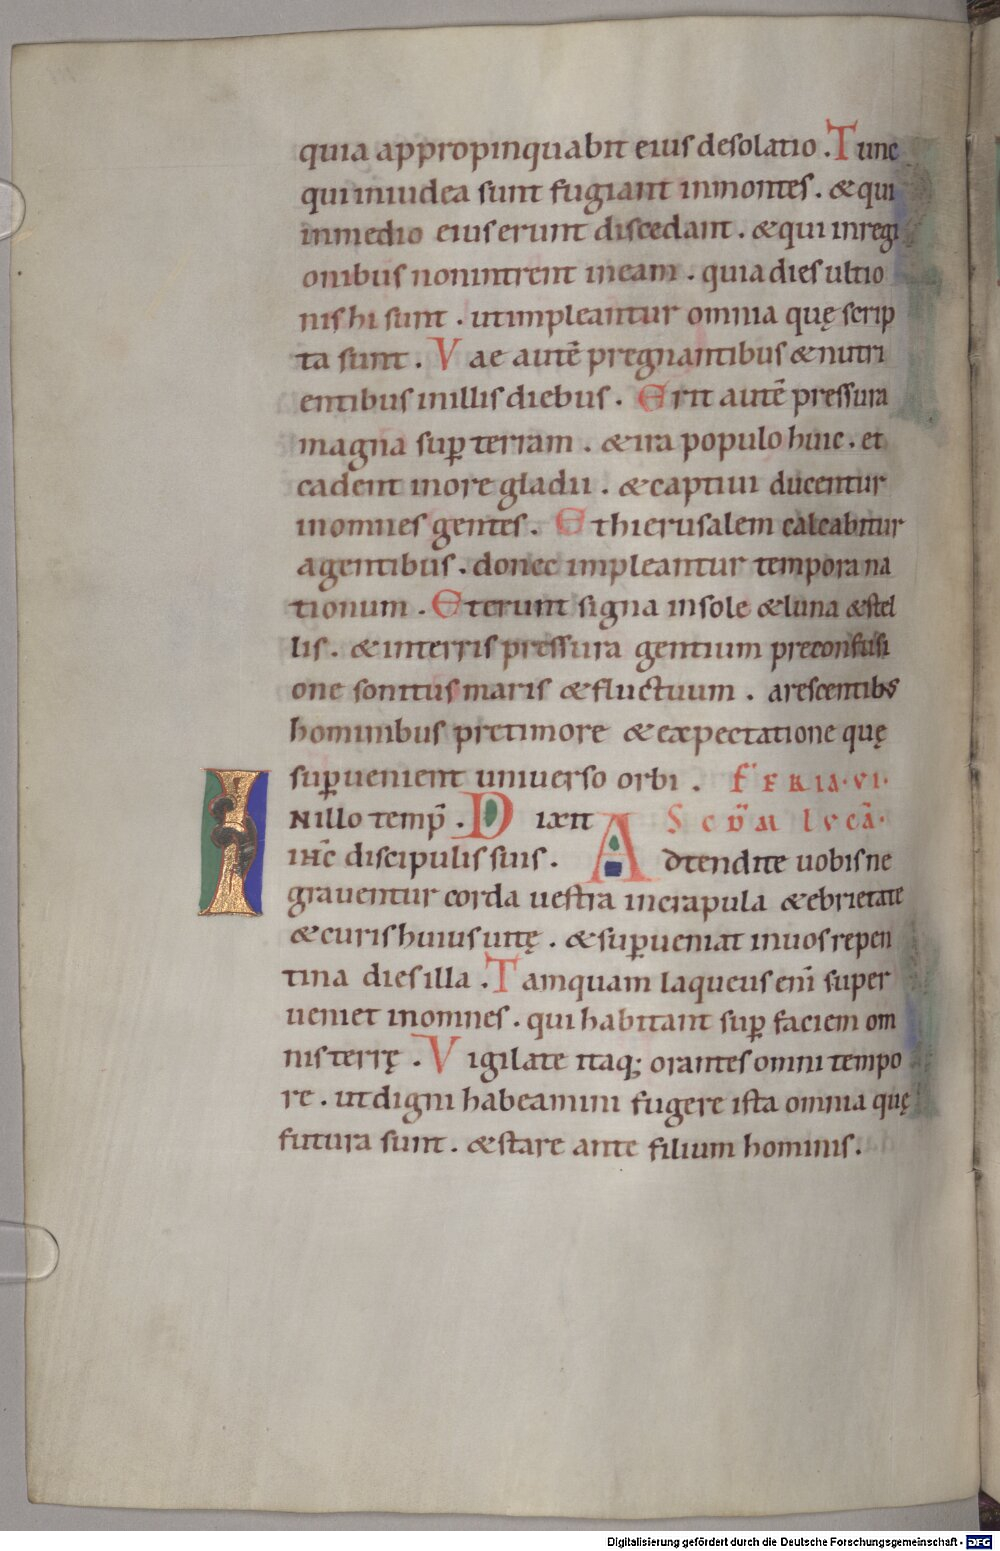 quia appropinquabit eius desolatio . Tunc
qui in iudea sunt fugiant in montes . & qui
in medio eius erunt discedant . & qui in regi
onibus non intrent in eam . quia dies ultio
nis hi sunt . ut impleantur omnia quę scrip
ta sunt . Vae autē pregnantibus & nutri
entibus in illis diebus . Erit autē pressura
magna suꝑ terram . & ira populo huic . et
cadent in ore gladii . & captiui ducentur
in omnes gentes . Et hierusalem calcabitur
a gentibus . donec impleantur tempora na
tionum . Et erunt signa in sole & luna & stel
lis . & in terris pressura gentium pre confusi
one sonitus maris & fluctuum . arescentibs
hominibus pre timore & expectatione quę
suꝑuenient uniuerso orbi . FERIA · VI ·
INillo temp̄ . Dixit SCD̄M LVCĀ ·
ihc̄ discipulis suis . Adtendite uobis ne
grauentur corda uestra in crapula & ebrietate
& curis huius uitę . & suꝑueniat in uos repen
tina dies illa . Tamquam laqueus eni̅ super
ueniet in omnes . qui habitant suꝑ faciem om
nis terrę . Vigilate itaq; orantes omni tempo
re . ut digni habeamini fugere ista omnia quę
futura sunt . & stare ante filium hominis .
Digitalisierung gefördert durch die Deutsche Forschungsgemeinschaft - DFG